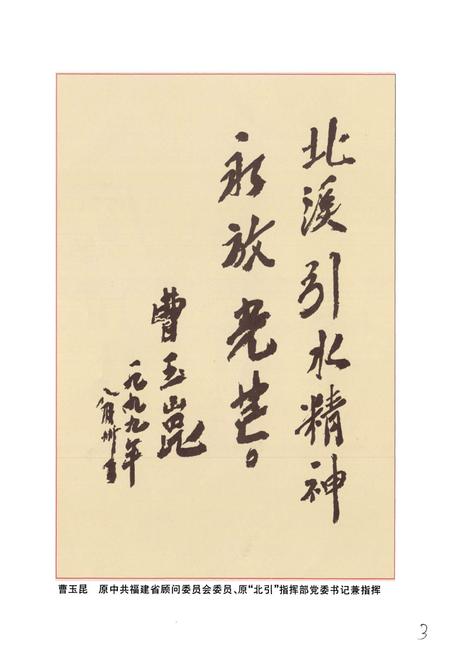 北溪引水精神
永放光芒。
曹玉崑
一九九九年
八月卅日
曹玉昆　原中共福建省顾问委员会委员、原“北引”指挥部党委书记兼指挥
3